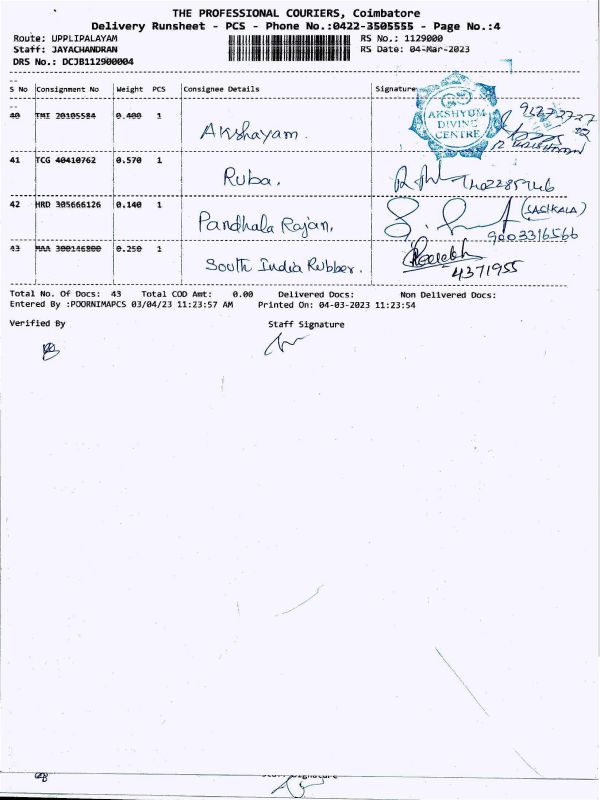 THE PROFESSIONAL COURIERS, Coimbatore
Delivery Runsheet - PCS - Phone No.:0422-3505555 - Page No.:4
Route: UPPLIPALAYAM RS No.: 1129000
Staff: JAYACHANDRAN RS Date: 04-Mar-2023
DRS No.: DCJB112900004
S No Consignment No Weight PCS Consignee Details Signature
40 TMI 20105584 0.400 1
Akshayam.
AKSHYUM
DIVINE
CENTRE
41 TCG 40410762 0.570 1
Ruba.
42 HRD 305666126 0.140 1
(SASIKALA)
Pandhala Rajan,
9003316566
43 MAA 300146800 0.250 1
South India Rubber.
4371955
Total No. Of Docs: 43 Total COD Amt: 0.00 Delivered Docs: Non Delivered Docs:
Entered By :POORNIMAPCS 03/04/23 11:23:57 AM Printed On: 04-03-2023 11:23:54
Verified By Staff Signature